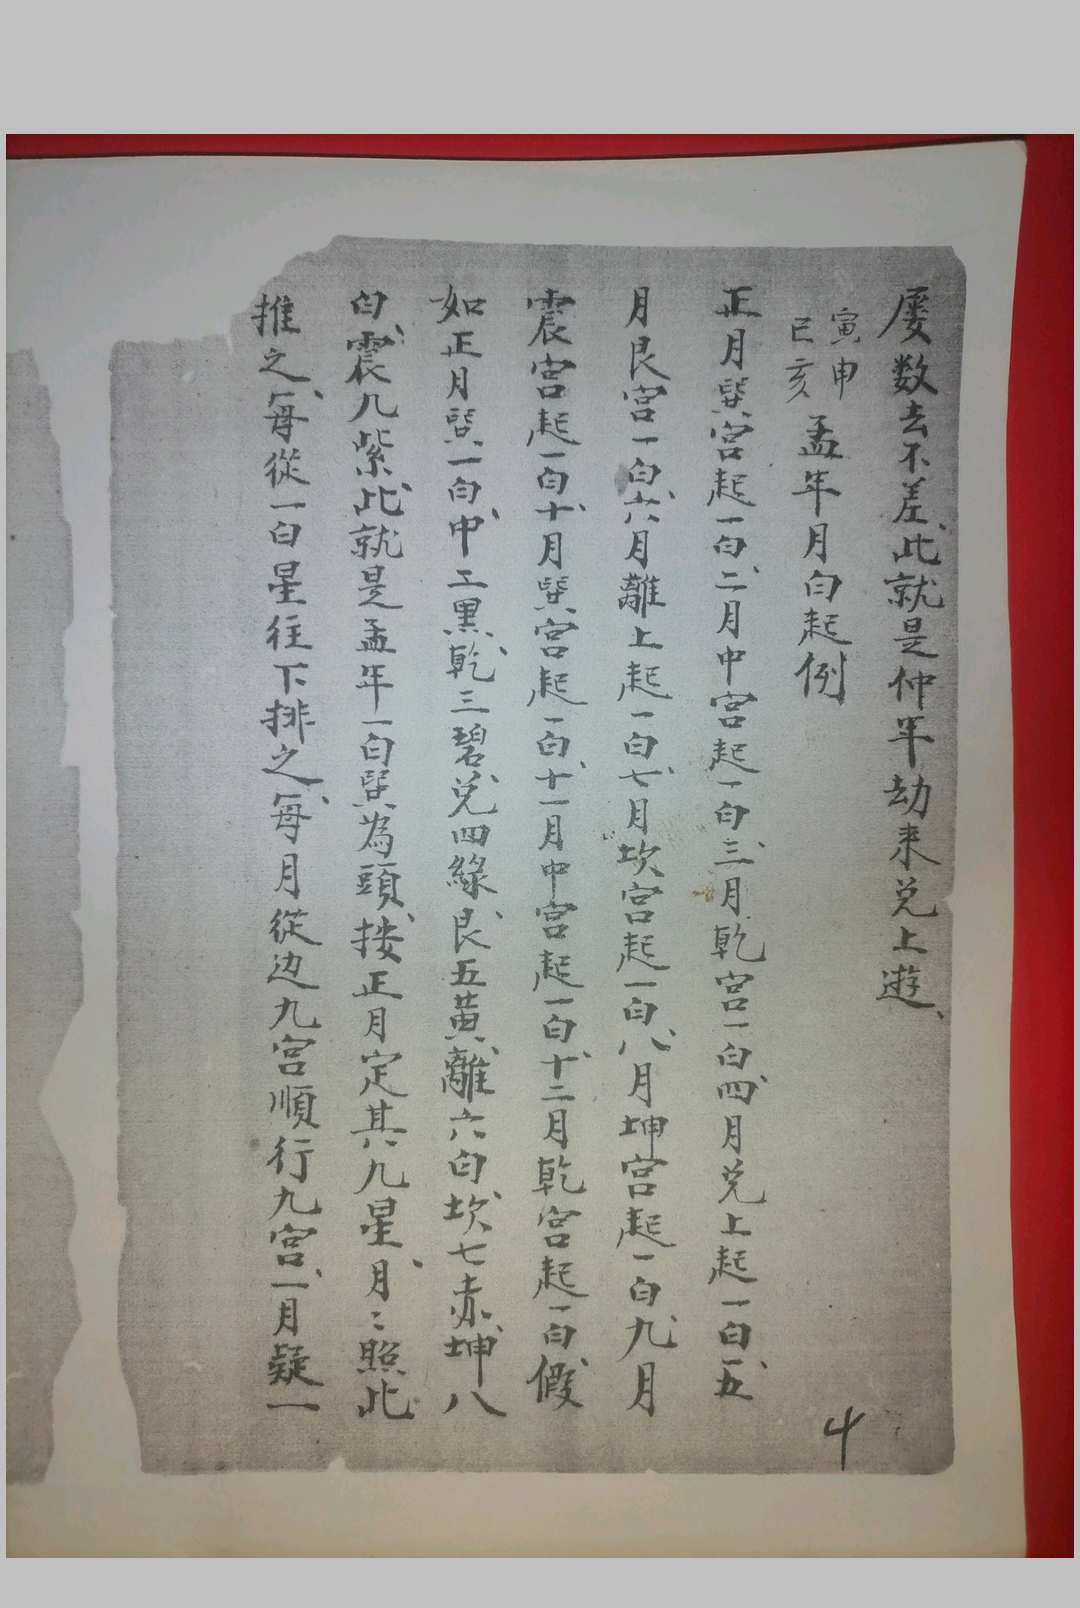 屡数去不差、此就是仲年劫来兑上遊、
寅申
巳亥
孟年月白起例
正月巽宫起一白、二月中宫起一白、三月乾宫一白、四月兑上起一白、五
月艮宫一白、六月離上起一白、七月坎宫起一白、八月坤宫起一白、九月
震宫起一白、十月巽宫起一白、十一月中宫起一白、十二月乾宫起一白、假
如正月巽一白、中二黑、乾三碧、兑四綠、艮五黄、離六白、坎七赤、坤八
白、震九紫、此就是孟年一白巽為頭、按正月定其九星、月〻照此
推之、每從一白星往下排之、每月從边九宫順行九宫、一月疑一
4